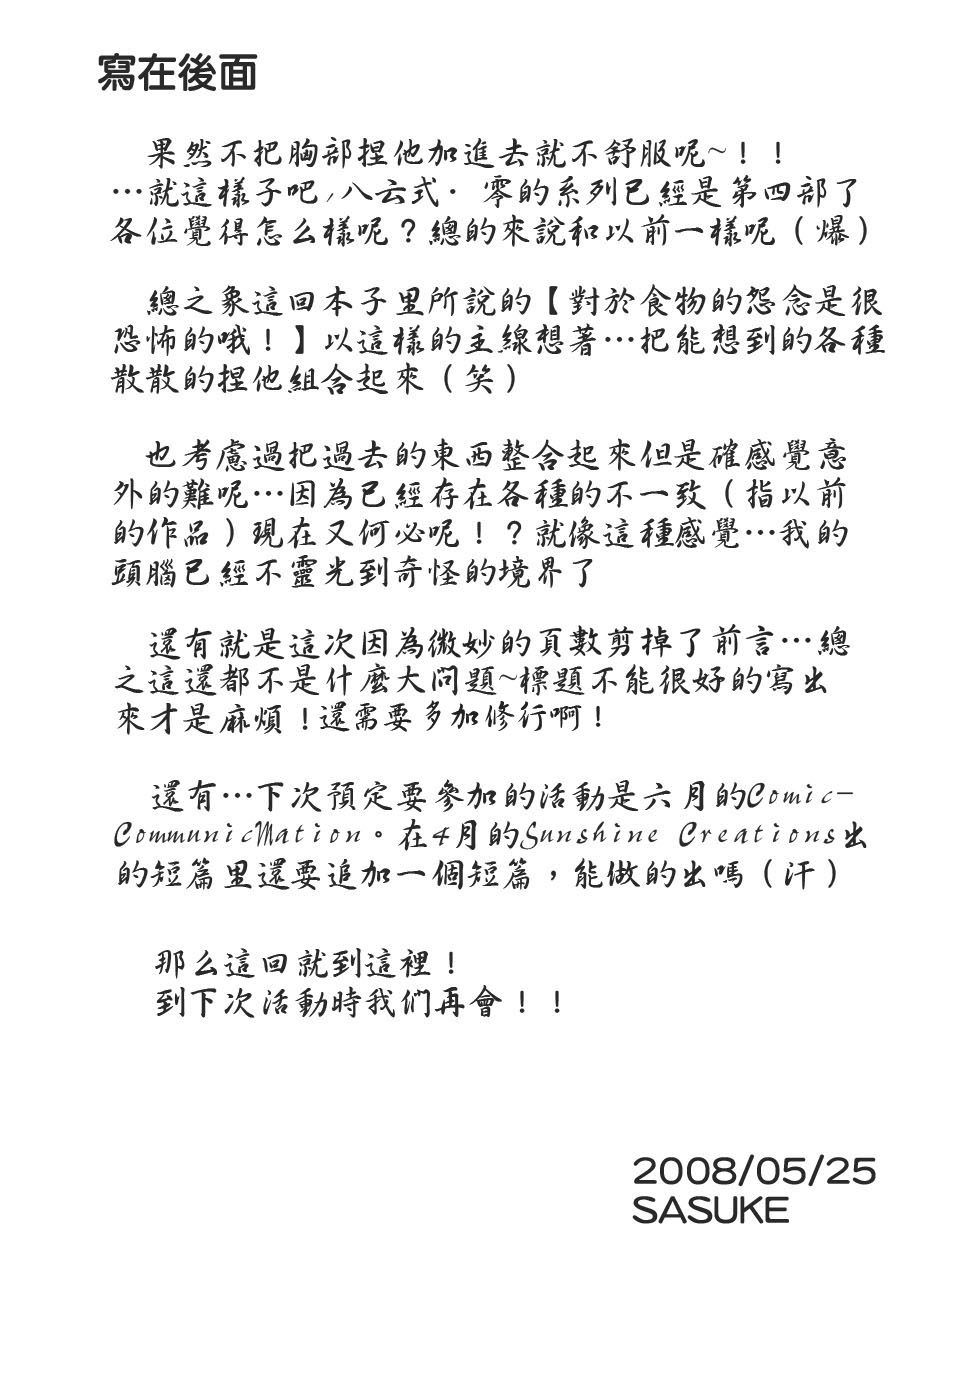 寫在後面
果然不把胸部捏他加進去就不舒服呢~！！
…就這樣子吧,八云式· 零的系列已經是第四部了
各位覺得怎么樣呢？總的來說和以前一樣呢（爆）
總之象這回本子里所說的【對於食物的怨念是很
恐怖的哦！】以這樣的主線想著…把能想到的各種
散散的捏他組合起來（笑）
也考慮過把過去的東西整合起來但是確感覺意
外的難呢…因為已經存在各種的不一致（指以前
的作品）現在又何必呢！？就像這種感覺…我的
頭腦已經不靈光到奇怪的境界了
還有就是這次因為微妙的頁數剪掉了前言…總
之這還都不是什麼大问題~標題不能很好的寫出
來才是麻煩！還需要多加修行啊！
還有…下次預定要參加的活動是六月的Comic-
CommunicMation。在4月的Sunshine Creations出
的短篇里還要追加一個短篇，能做的出嗎（汗）
那么這回就到這裡！
到下次活動時我們再會！！
2008/05/25
SASUKE